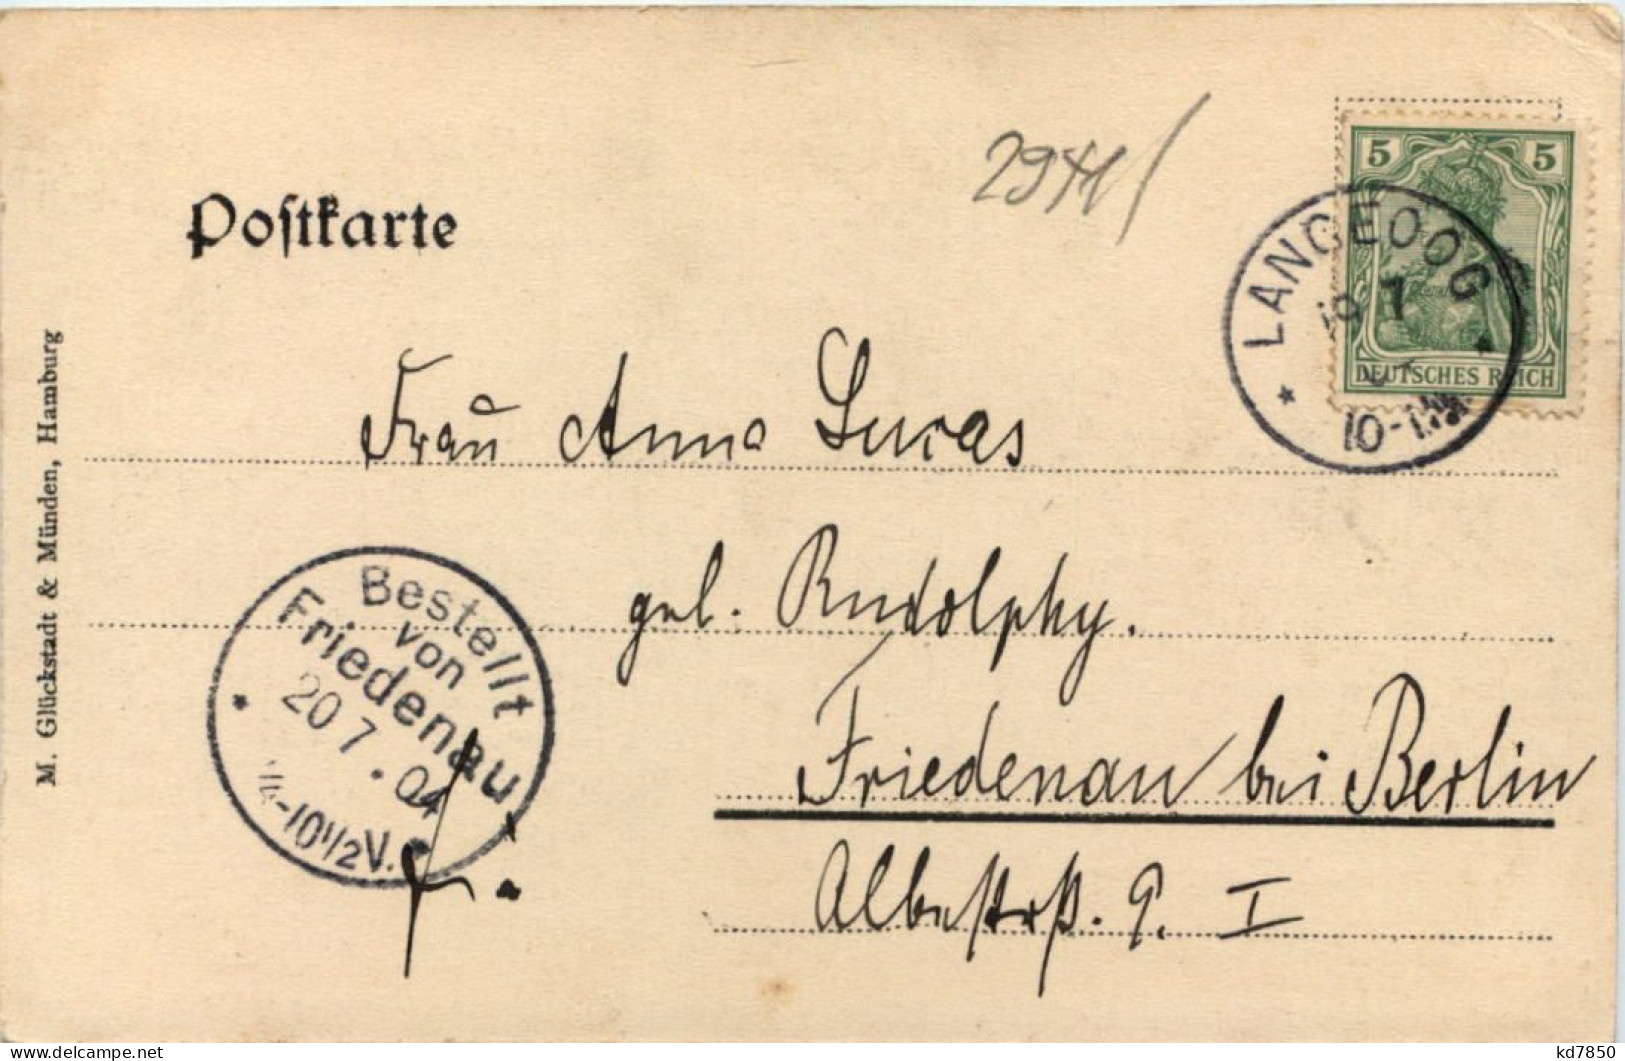 2941/
5 5
DEUTSCHES REICH
* LANGEOOG *
19 7
10-11
Postkarte
M. Glückstadt & Münden, Hamburg
Frau Anna Lucas
geb. Rudolphy.
Friedenau bei Berlin
Albestrß. 9. I
Bestellt
von
Friedenau
20 7 . 04
-10 1/2 V.
kd7850